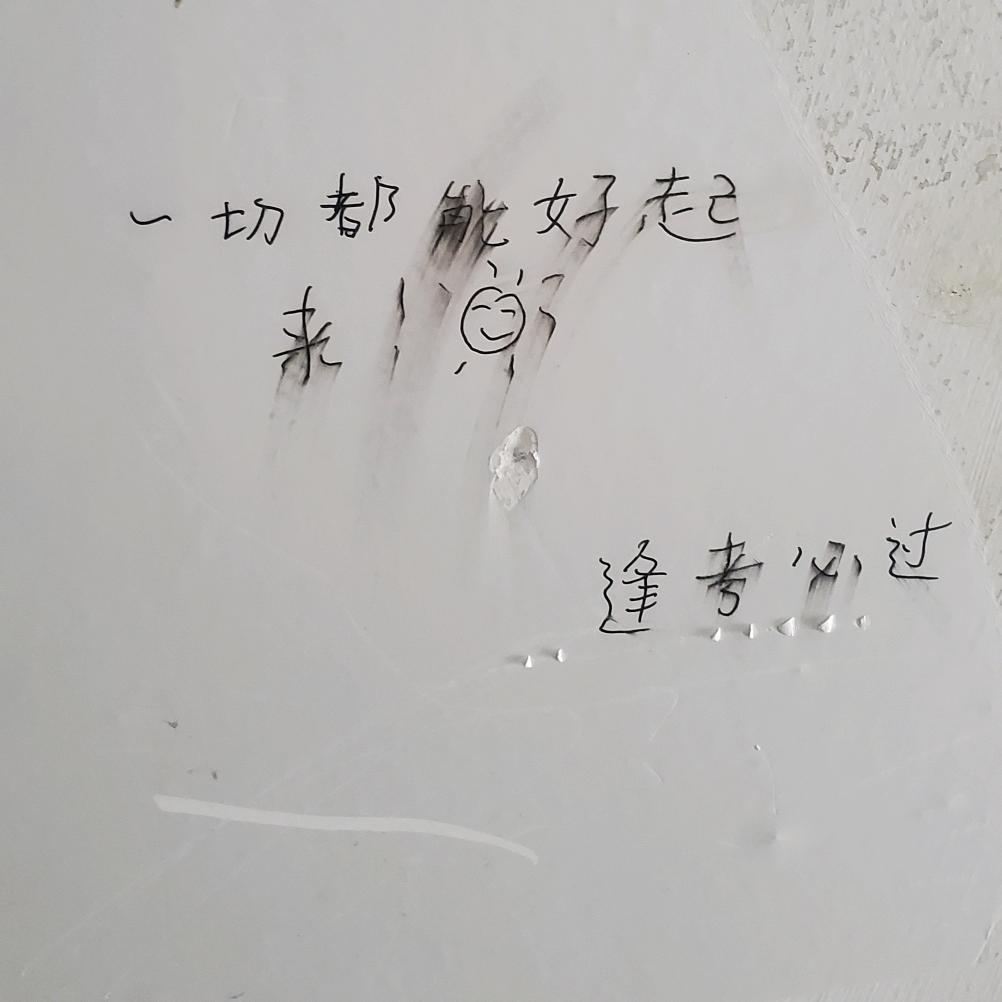 一切都能好起
来!
逢考必过